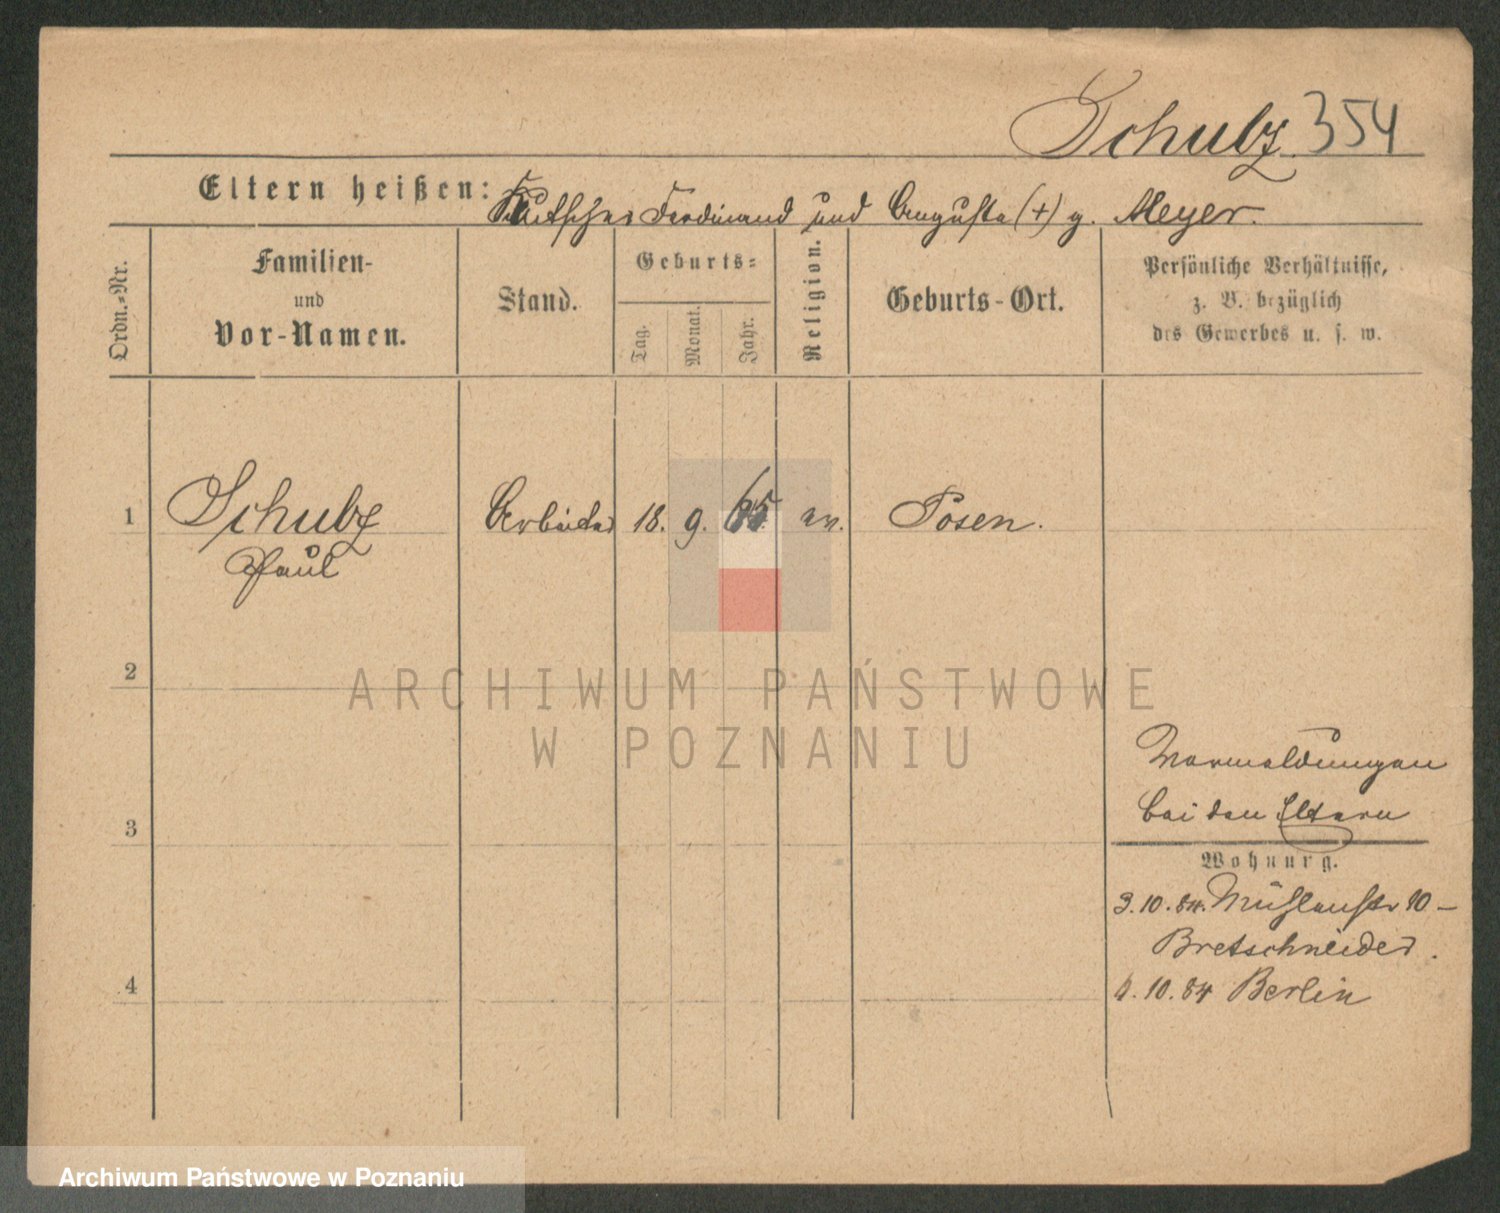 Schulz. 354
Eltern heißen: Kutscher Ferdinand und Auguste (+) g. Meyer.
Ordn.-Nr.
Familien-
und
Vor-Namen.
Stand.
Geburts-
Tag.
Monat.
Jahr.
Religion.
Geburts-Ort.
Persönliche Verhältnisse,
z. B. bezüglich
des Gewerbes u. s. w.
1 Schulz Arbeiter 18. 9. 65 ev. Posen.
Paul
2
ARCHIWUM PAŃSTWOWE
W POZNANIU
Vormeldungen
bei den Eltern
3
Wohnung.
3.10.84. Mühlenstr 10 –
Bretschneider.
4
10.84 Berlin
Archiwum Państwowe w Poznaniu